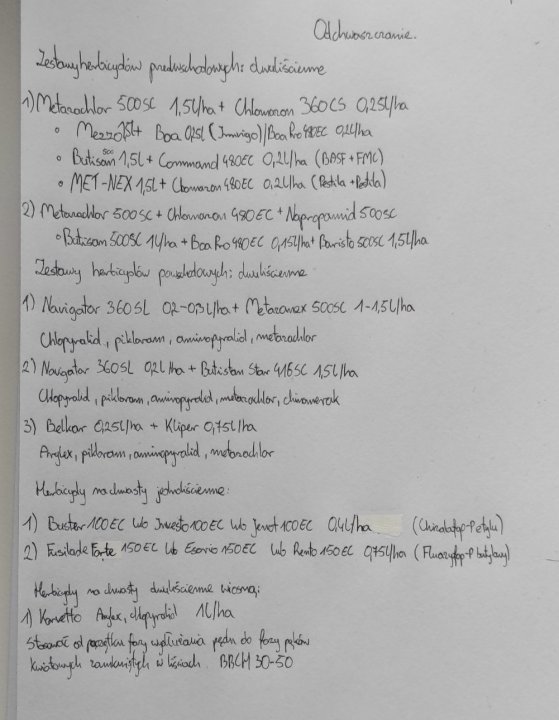 Odchwaszczanie.
Zestawy herbicydów przedwschodowych: dwuliścienne
1) Metazachlor 500SC 1,5l/ha + Chlomazon 360CS 0,25l/ha
• Mezzo 1,5l + Boa 0,25l (Innvigo)/Boa Pro 480EC 0,2l/ha
• Butisan 500 1,5l + Command 480EC 0,2l/ha (BASF + FMC)
• MET-NEX 1,5l + Clomazon 480EC 0,2l/ha (Pestila + Pestila)
2) Metazachlor 500SC + Chlomazon 480EC + Napropamid 500SC
• Butisan 500SC 1l/ha + Boa Pro 480EC 0,15l/ha + Baristo 500SC 1,5l/ha
Zestawy herbicydów powschodowych: dwuliścienne
1) Navigator 360SL 0,2-0,3l/ha + Metazanex 500SC 1-1,5l/ha
Chlopyralid, pikloram, aminopyralid, metazachlor
2) Navigator 360SL 0,2l/ha + Butistan Star 416SC 1,5l/ha
Chlopyralid, pikloram, aminopyralid, metazachlor, chinomerak
3) Belkar 0,25l/ha + Kliper 0,75l/ha
Arylex, pikloram, aminopyralid, metazachlor
Herbicydy na chwasty jednoliścienne:
1) Buster 100EC lub Investo 100EC lub Jenot 100EC 0,4l/ha (Chizalofop-P etylu)
2) Fusilade Forte 150EC lub Esorio 150EC lub Rento 150EC 0,75l/ha (Fluazyfop-P butylowy)
Herbicydy na chwasty dwuliścienne wiosną:
1) Korvetto Arylex, chlopyralid 1l/ha
Stosować od początku fazy wydłużania pędu do fazy pąków
kwiatowych zamkniętych w liściach. BBCH 30-50